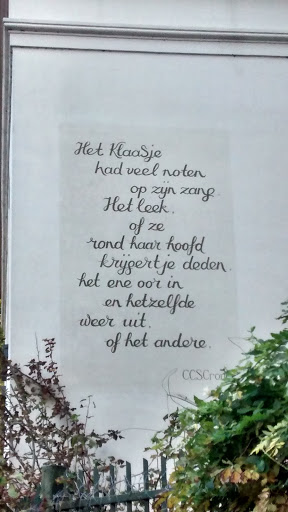 Het KlaaSje
had veel noten
op zijn zang.
Het leek,
of ze
rond haar hoofd
krijgertje deden,
het ene oor in
en hetzelfde
weer uit.
of het andere.